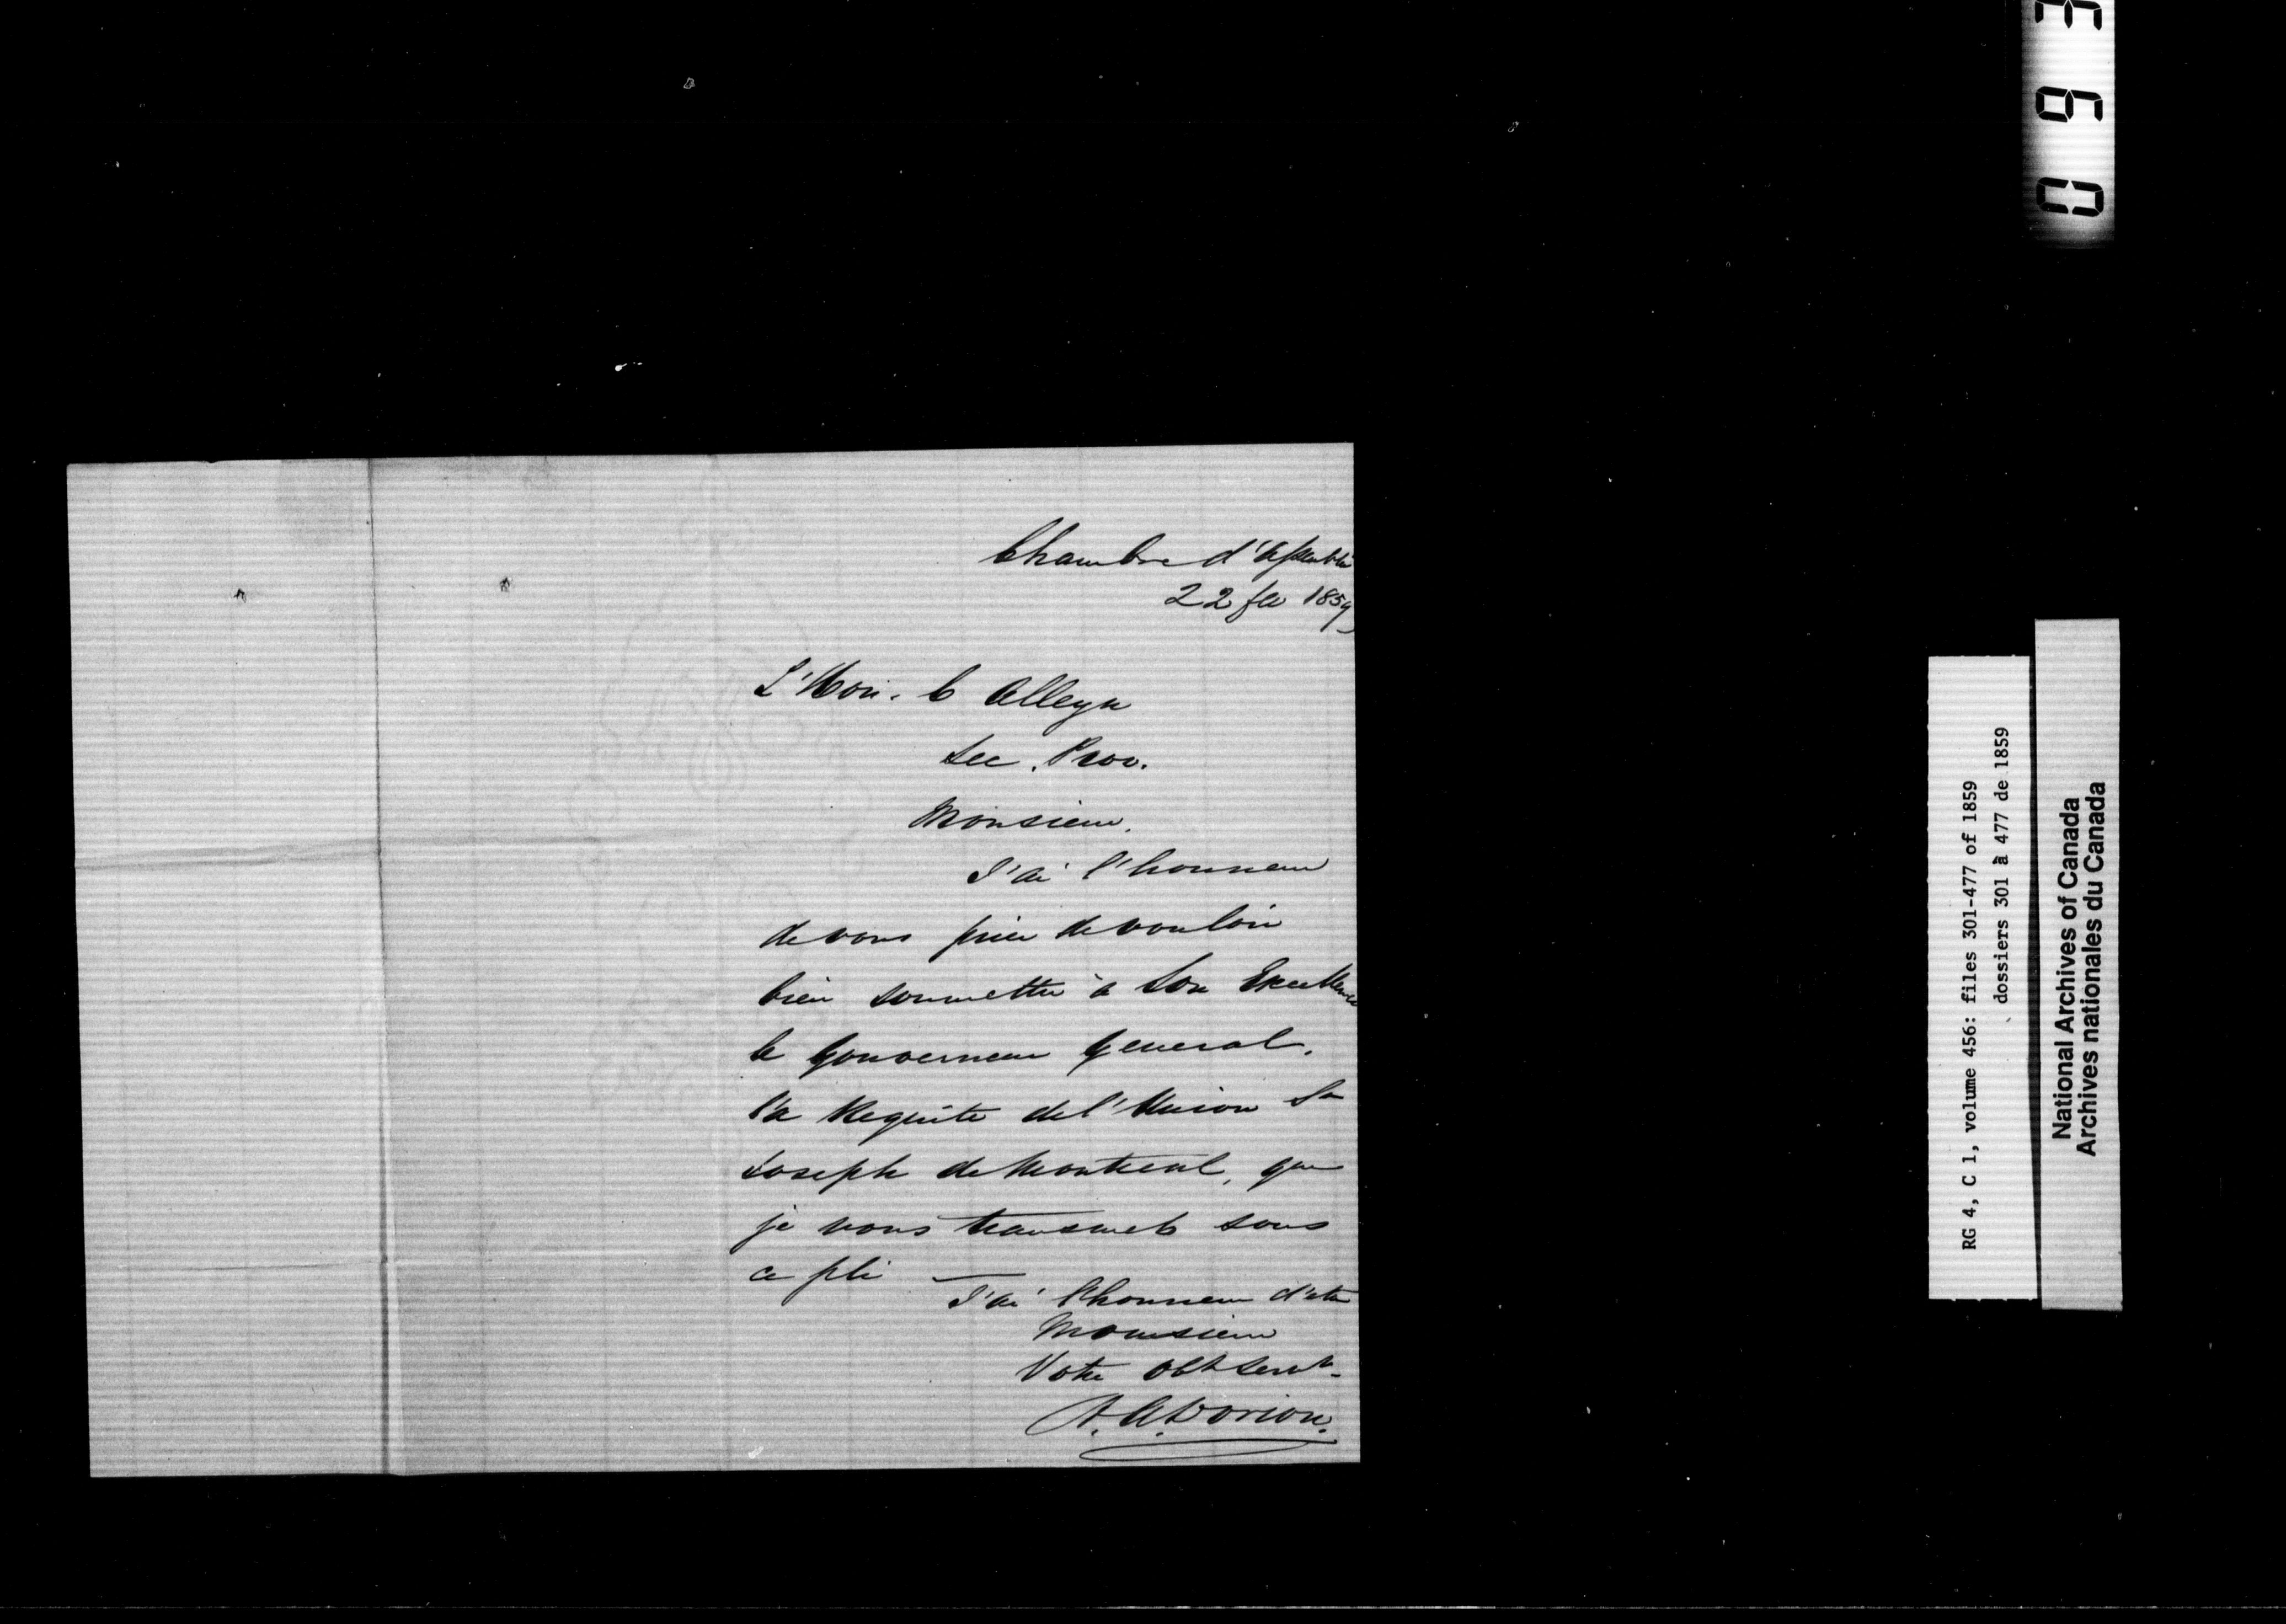 Chambre d'Assemblée
22 fev 1859
L'Hon. C Alleyn
Sec. Prov.
Monsieur,
J'ai l'honneur
de vous prier de vouloir
bien soumettre à Son Excellence
le Gouverneur General,
la Requête de l'Union St
Joseph de Montreal, que
je vous transmets sous
ce pli —
J'ai l'honneur d'etre
Monsieur
Votre obt servt
A. A. Dorion.
093
RG 4, C 1, volume 456: files 301-477 of 1859
dossiers 301 à 477 de 1859
National Archives of Canada
Archives nationales du Canada